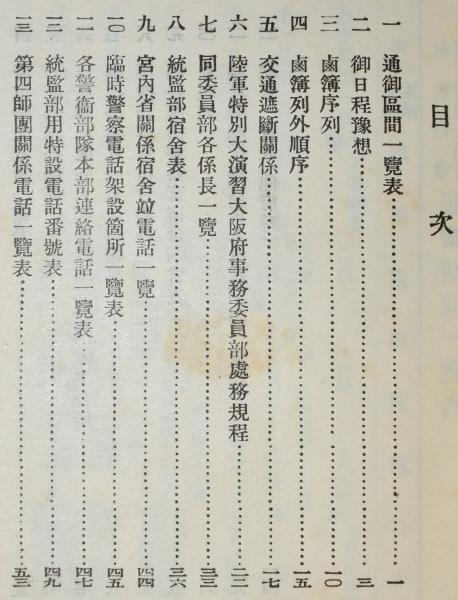 目次
一 通御區間一覽表 一
二 御日程豫想 三
三 鹵簿序列 一〇
四 鹵簿列外順序 一五
五 交通遮斷關係 一七
六 陸軍特別大演習大阪府事務委員部處務規程 二二
七 同委員部各係長一覽 三三
八 統監部宿舍表 三六
九 宮內省關係宿舍竝電話一覽 四四
一〇 臨時警察電話架設箇所一覽表 四五
一一 各警衞部隊本部連絡電話一覽表 四七
一二 統監部用特設電話番號表 四九
一三 第四師團關係電話一覽表 五三